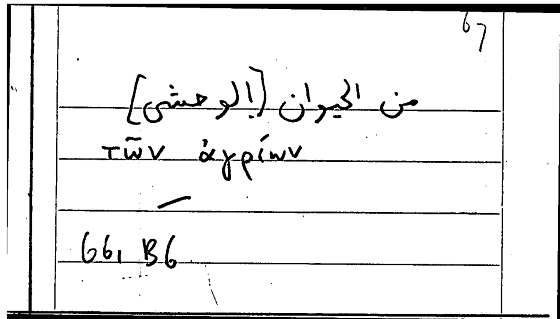 67
من الحيوان [الوحشى]
τῶν ἀγρίων
—
66, B6